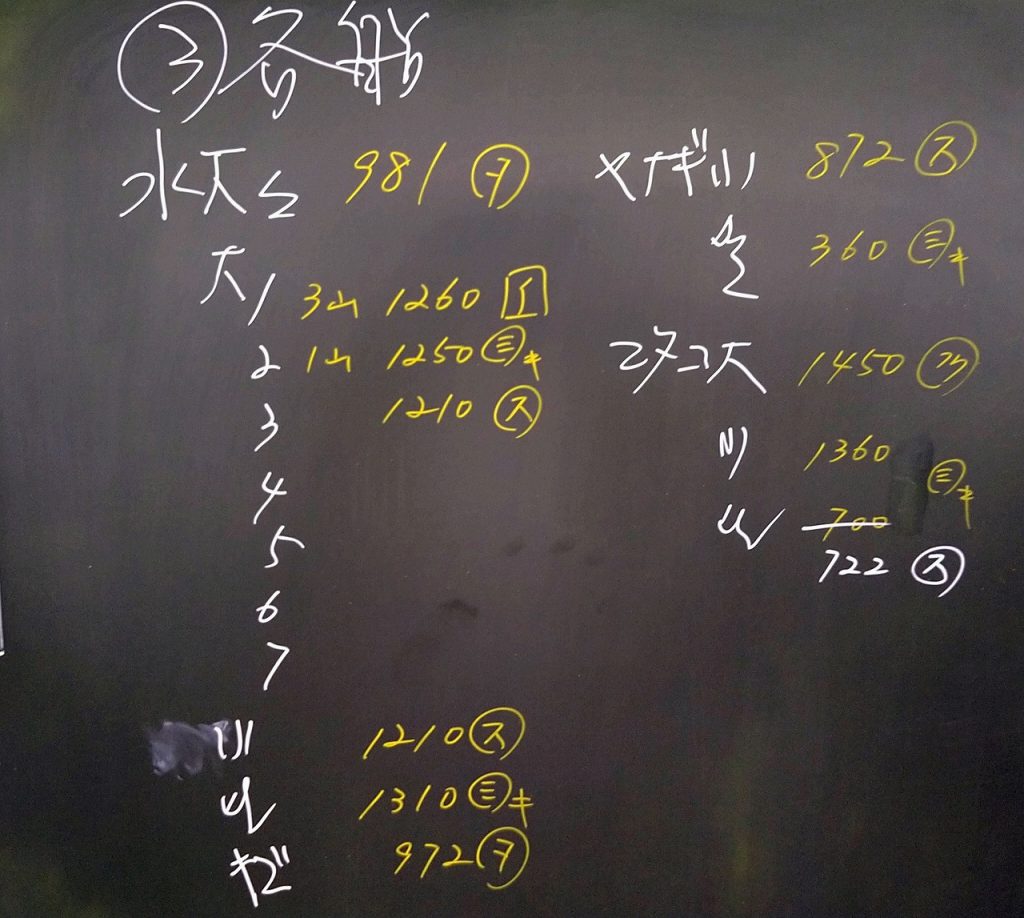 ③各船
水大上 981 ㋔
大1 3山 1260
2 1山 1250 ㊂キ
3 1210 ㋜
4
5
6
7
小 1210 ㋜
1310 ㊂キ
972 ㋔
ヤナギ小 872 ㋜
360 ㊂キ
マダコ大 1450
小 1360 ㊂キ
700
722 ㋜